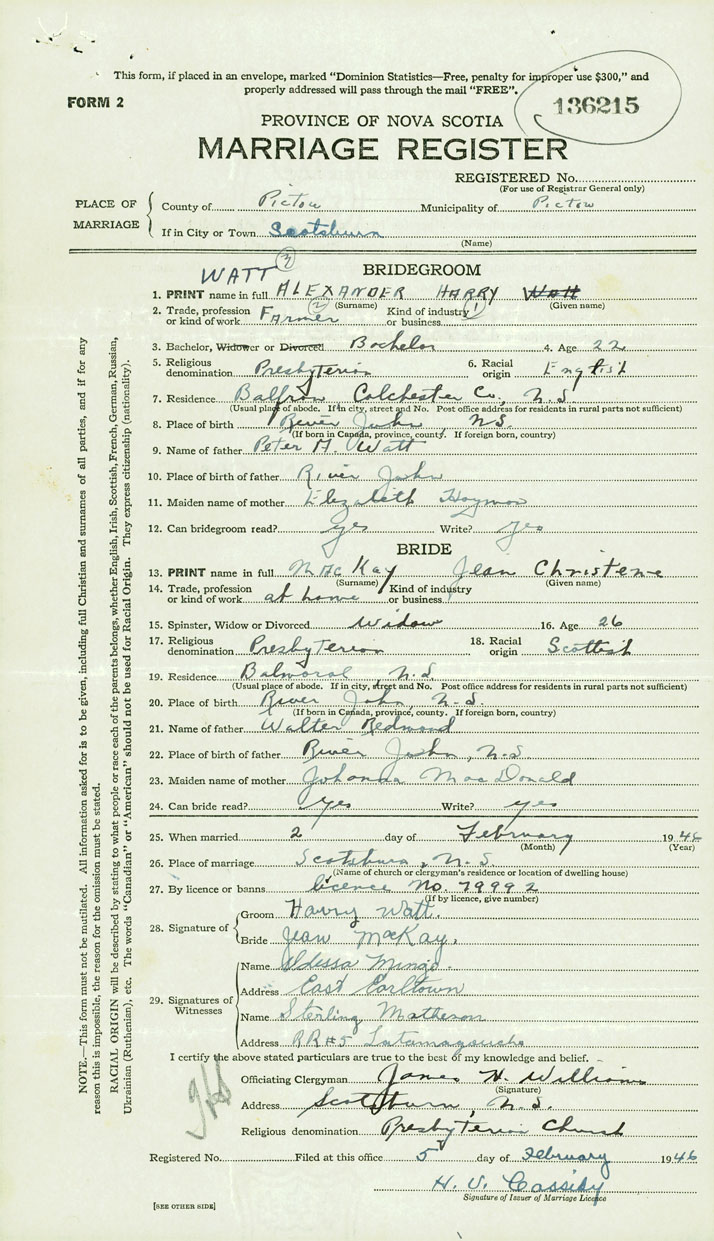 This form, if placed in an envelope, marked “Dominion Statistics—Free, penalty for improper use $300,” and
properly addressed will pass through the mail “FREE”.
FORM 2
136215
PROVINCE OF NOVA SCOTIA
MARRIAGE REGISTER
REGISTERED No.
(For use of Registrar General only)
PLACE OF MARRIAGE
County of Pictou Municipality of Pictou
If in City or Town Scotsburn
(Name)
WATT (3)
BRIDEGROOM
1. PRINT name in full ALEXANDER HARRY Watt
(Surname) (Given name)
(2) (1)
2. Trade, profession or kind of work Farmer Kind of industry or business
3. Bachelor, Widower or Divorced Bachelor 4. Age 22
5. Religious denomination Presbyterian 6. Racial origin English
7. Residence Balfron Colchester Co., N.S
(Usual place of abode. If in city, street and No. Post office address for residents in rural parts not sufficient)
8. Place of birth River John NS.
(If born in Canada, province, county. If foreign born, country)
9. Name of father Peter A. Watt
10. Place of birth of father River John
11. Maiden name of mother Elizabeth
12. Can bridegroom read? yes Write? yes
BRIDE
13. PRINT name in full MacKay Jean Christene
(Surname) (Given name)
14. Trade, profession or kind of work at home Kind of industry or business
15. Spinster, Widow or Divorced Widow 16. Age 26
17. Religious denomination Presbyterian 18. Racial origin Scottish
19. Residence Balmoral N.S.
(Usual place of abode. If in city, street and No. Post office address for residents in rural parts not sufficient)
20. Place of birth River John, N.S.
(If born in Canada, province, county. If foreign born, country)
21. Name of father Walter Redmond
22. Place of birth of father River John, N.S
23. Maiden name of mother Johanna MacDonald
24. Can bride read? yes Write? yes
25. When married 2 day of February 1946
(Month) (Year)
26. Place of marriage Scotsburn, N.S.
(Name of church or clergyman's residence or location of dwelling house)
27. By licence or banns licence No. 79992
(If by licence, give number)
28. Signature of
Groom Harry Watt.
Bride Jean MacKay.
29. Signatures of Witnesses
Name Mingo.
Address East Earltown
Name Sterling Matheson
Address RR#5 Tatamagouche
I certify the above stated particulars are true to the best of my knowledge and belief.
Officiating Clergyman James H. Williams
(Signature)
Address Scotsburn, N.S.
Religious denomination Presbyterian Church
Registered No. Filed at this office 5 day of February 1946
H. V. Cassidy
Signature of Issuer of Marriage Licence
[SEE OTHER SIDE]
NOTE.—This form must not be mutilated. All information asked for is to be given, including full Christian and surnames of all parties, and if for any
reason this is impossible, the reason for the omission must be stated.
RACIAL ORIGIN will be described by stating to what people or race each of the parents belongs, whether English, Irish, Scottish, French, German, Russian,
Ukrainian (Ruthenian), etc. The words “Canadian” or “American” should not be used for Racial Origin. They express citizenship (nationality).